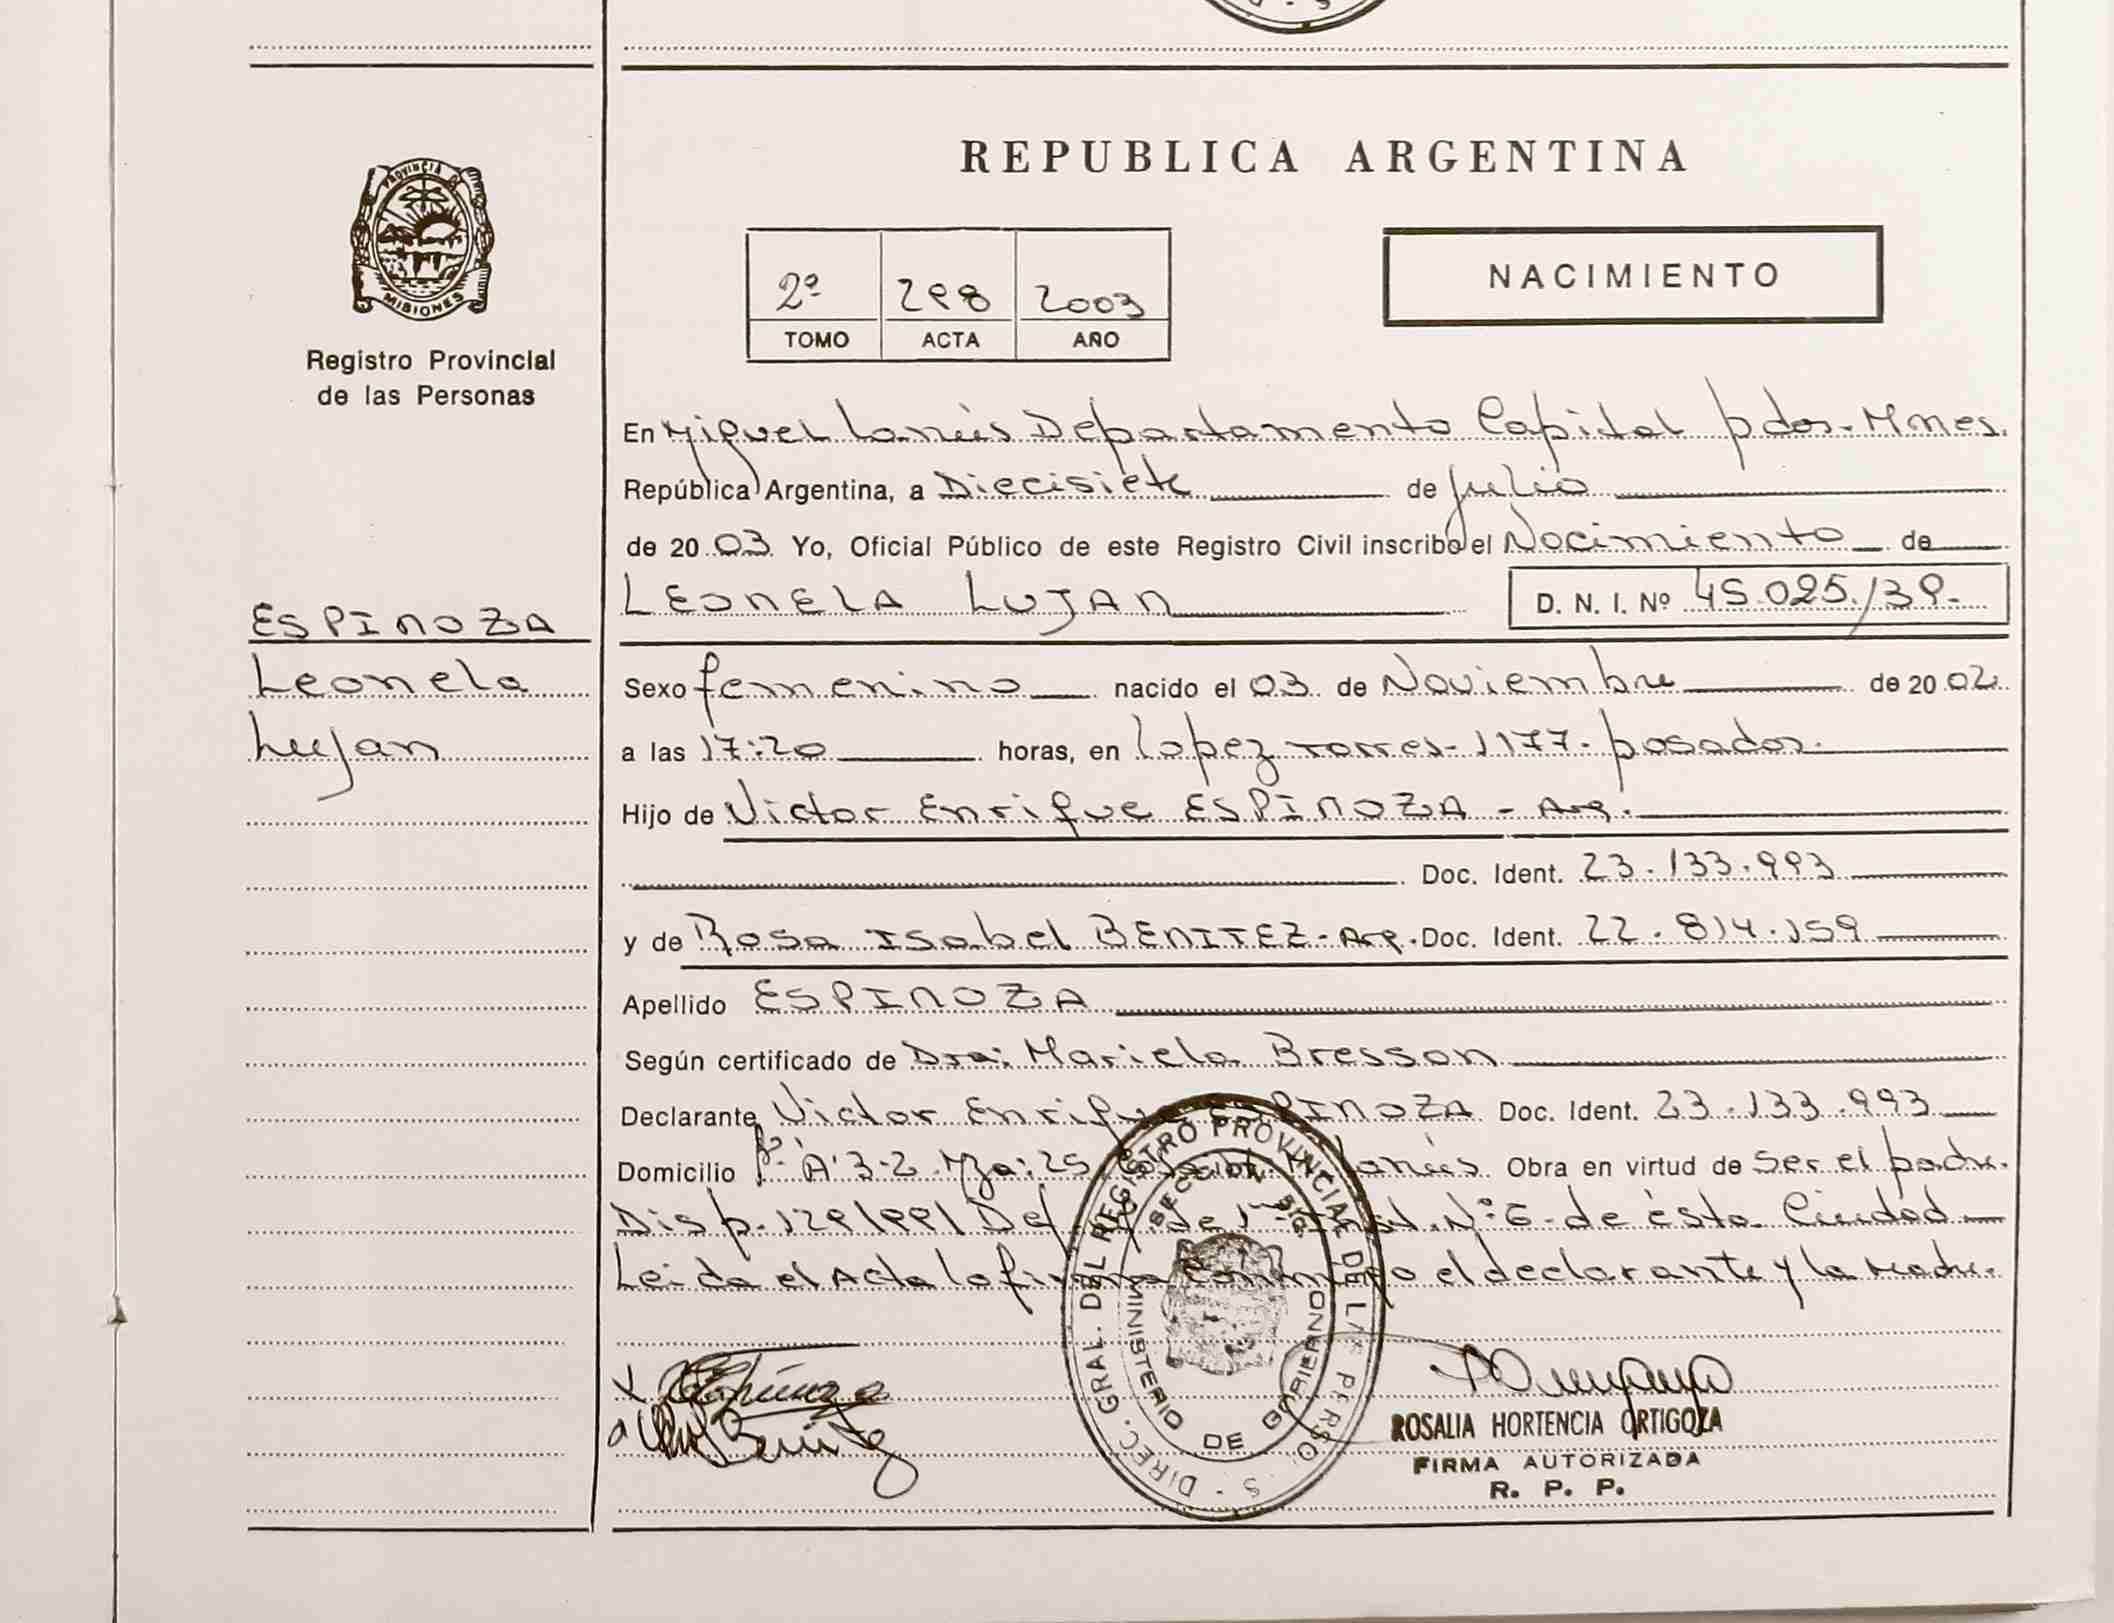 PROVINCIA DE
MISIONES
Registro Provincial
de las Personas
ESPINOZA
Leonela
Lujan
REPUBLICA ARGENTINA
2º 298 2003
TOMO ACTA AÑO
NACIMIENTO
En Miguel Lanús Departamento Capital pdas. Mnes.
República Argentina, a Diecisiete de Julio
de 2003 Yo, Oficial Público de este Registro Civil inscribo el Nacimiento de
LEONELA LUJAN D. N. I. Nº 45.025.139-
Sexo femenino nacido el 03 de Noviembre de 2002
a las 17:20 horas, en Lopez Torres - 1177 - posadas.
Hijo de Victor Enrique ESPINOZA - Arg.
Doc. Ident. 23.133.993
y de Rosa Isabel BENITEZ - Arg. Doc. Ident. 22.814.159
Apellido ESPINOZA
Según certificado de Dra: Mariela Bresson
Declarante Victor Enrique ESPINOZA Doc. Ident. 23.133.993
Domicilio A:3-2 Mza:25 Lanús Obra en virtud de ser el padre.
Disp. 129/99/ Def. de 1ra Inst. Nº 6 - de ésta Ciudad
Leida el Acta la firma conmigo el declarante y la Madre.
DIREC. GRAL. DEL REGISTRO PROVINCIAL DE LAS PERSO S
MINISTERIO DE GOBIERNO
X Espinoza
Benitez
ROSALIA HORTENCIA ORTIGOZA
FIRMA AUTORIZADA
R. P. P.